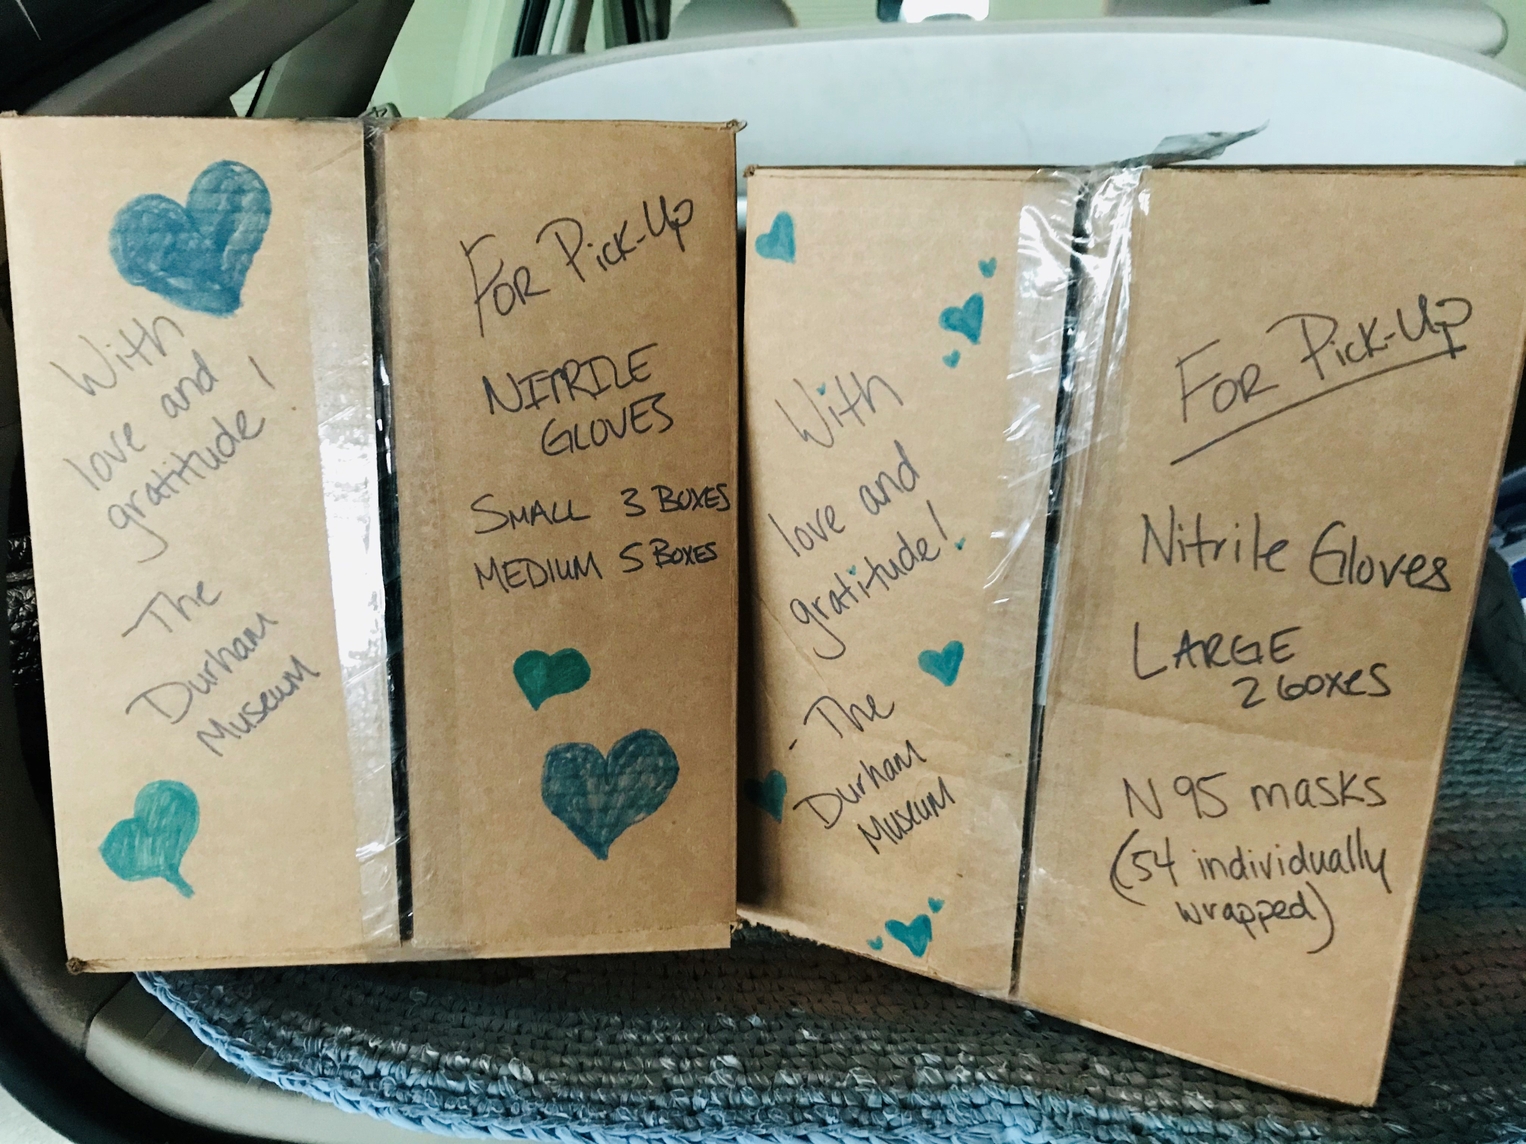 With
love and
gratitude!
The
Durham
Museum
For Pick-Up
NITRILE
GLOVES
SMALL 3 BOXES
MEDIUM 5 BOXES
With
love and
gratitude!
- The
Durham
Museum
For Pick-Up
Nitrile Gloves
LARGE
2 boxes
N95 masks
(54 individually
wrapped)